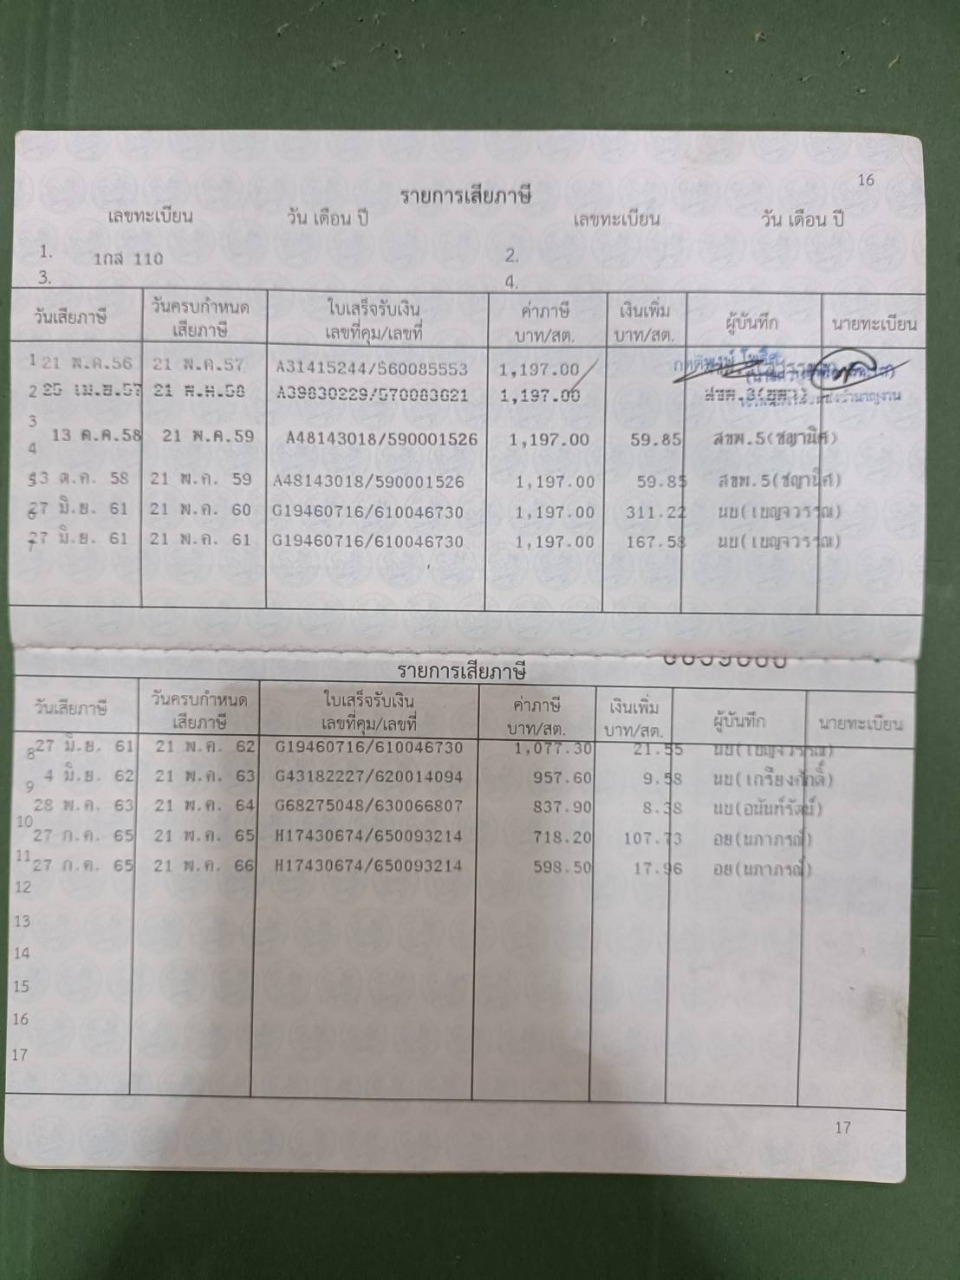 16
รายการเสียภาษี
เลขทะเบียน วัน เดือน ปี เลขทะเบียน วัน เดือน ปี
1. 1กส 110 2.
3. 4.
วันเสียภาษี วันครบกำหนดเสียภาษี ใบเสร็จรับเงิน เลขที่คุม/เลขที่ ค่าภาษี บาท/สต. เงินเพิ่ม บาท/สต. ผู้บันทึก นายทะเบียน
1 21 พ.ค.56 21 พ.ค.57 A31415244/560085553 1,197.00
2 25 เม.ย.57 21 พ.ค.58 A39830229/570083621 1,197.00
3
4 13 ต.ค.58 21 พ.ค.59 A48143018/590001526 1,197.00 59.85 สขพ.5(ชญานิศ)
5 13 ต.ค. 58 21 พ.ค. 59 A48143018/590001526 1,197.00 59.85 สขพ.5(ชญานิศ)
6 27 มิ.ย. 61 21 พ.ค. 60 G19460716/610046730 1,197.00 311.22 นบ(เบญจวรรณ)
7 27 มิ.ย. 61 21 พ.ค. 61 G19460716/610046730 1,197.00 167.58 นบ(เบญจวรรณ)
รายการเสียภาษี
วันเสียภาษี วันครบกำหนดเสียภาษี ใบเสร็จรับเงิน เลขที่คุม/เลขที่ ค่าภาษี บาท/สต. เงินเพิ่ม บาท/สต. ผู้บันทึก นายทะเบียน
8 27 มิ.ย. 61 21 พ.ค. 62 G19460716/610046730 1,077.30 21.55 นบ(เบญจวรรณ)
9 4 มิ.ย. 62 21 พ.ค. 63 G43182227/620014094 957.60 9.58 นบ(เกรียงศักดิ์)
10 28 พ.ค. 63 21 พ.ค. 64 G68275048/630066807 837.90 8.38 นบ(อนันท์รัตน์)
11 27 ก.ค. 65 21 พ.ค. 65 H17430674/650093214 718.20 107.73 อย(นภาภรณ์)
12 27 ก.ค. 65 21 พ.ค. 66 H17430674/650093214 598.50 17.96 อย(นภาภรณ์)
13
14
15
16
17
17